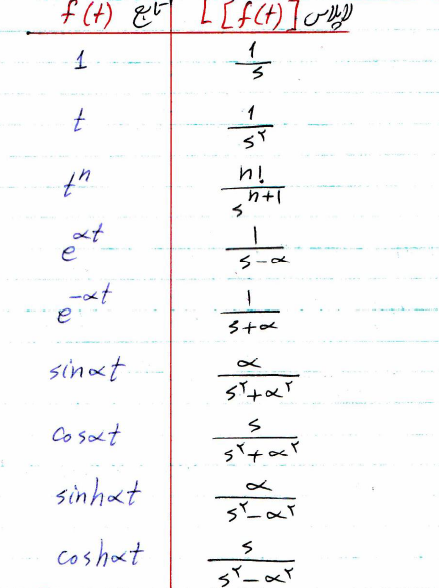 تابع f(t) لاپلاس L[f(t)]
1 1/s
t 1/s^۲
t^n n!/s^(n+1)
e^(αt) 1/(s-α)
e^(-αt) 1/(s+α)
sinαt α/(s^۲+α^۲)
cosαt s/(s^۲+α^۲)
sinhαt α/(s^۲-α^۲)
coshαt s/(s^۲-α^۲)